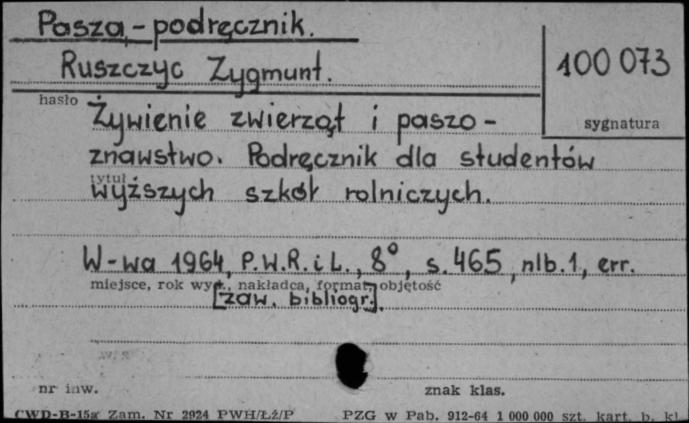 Pasza - podręcznik.
Ruszczyc Zygmunt.
100 073
hasło
sygnatura
Żywienie zwierząt i paszo-
znawstwo. Podręcznik dla studentów
tytuł
wyższych szkół rolniczych.
W-wa 1964, P.W.R.i L., 8°, s. 465, nlb. 1, err.
miejsce, rok wyd., nakładca, format, objętość
[zaw. bibliogr.].
nr inw.
znak klas.
CWD-B-15a Zam. Nr 2924 PWH/Łż/P PZG w Pab. 912-64 1 000 000 szt. kart. b. kl